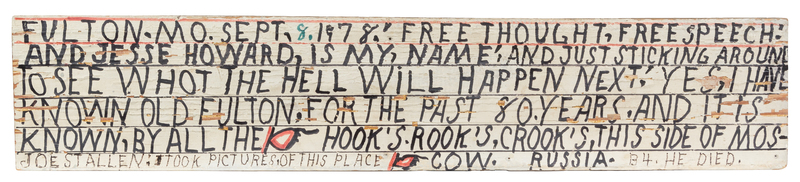 FULTON. MO. SEPT, 8. 1978.! FREE THOUGHT, FREE SPEECH:
AND JESSE HOWARD, IS MY, NAME! AND JUST STICKING AROUND
TO SEE WHOT THE HELL WILL HAPPEN NEXT! YES, I HAVE
KNOWN OLD FULTON, FOR THE PAST 80. YEARS. AND IT IS
KNOWN, BY ALL THE HOOK'S. ROOK'S, CROOK'S, THIS SIDE OF MOS-
JOE STALLEN. TOOK PICTURES, OF THIS PLACE COW. RUSSIA. B4. HE DIED.